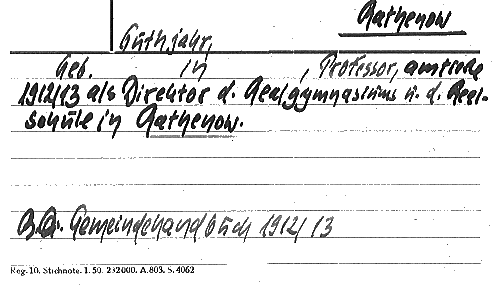 Rathenow
Guthjahr,
Geb. in , Professor, amtirte
1912/13 als Direktor d. Realgymnasiums u. d. Real-
schule in Rathenow.
B.Q. Gemeindehandbuch 1912/13
Reg. 10. Stichnote. 1. 50. 232000. A. 803. S. 4062